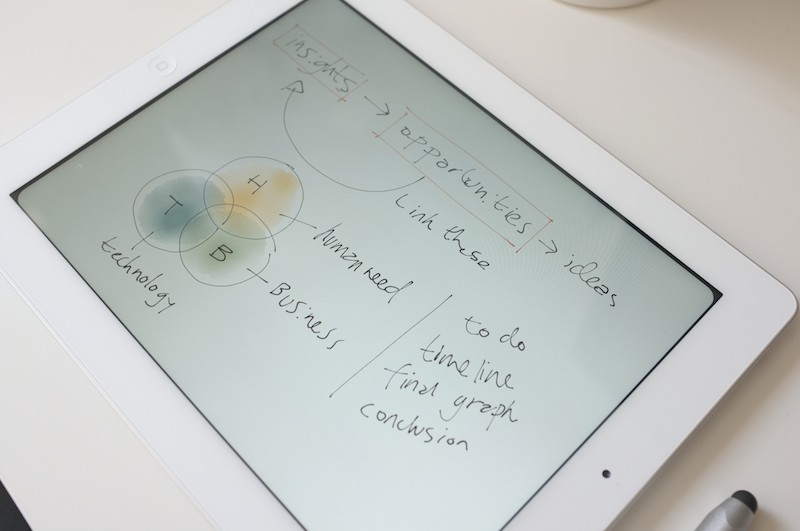 insights → opportunities → ideas
Link these
T
H
B
technology
human need
Business
to do
timeline
final graph
conclusion